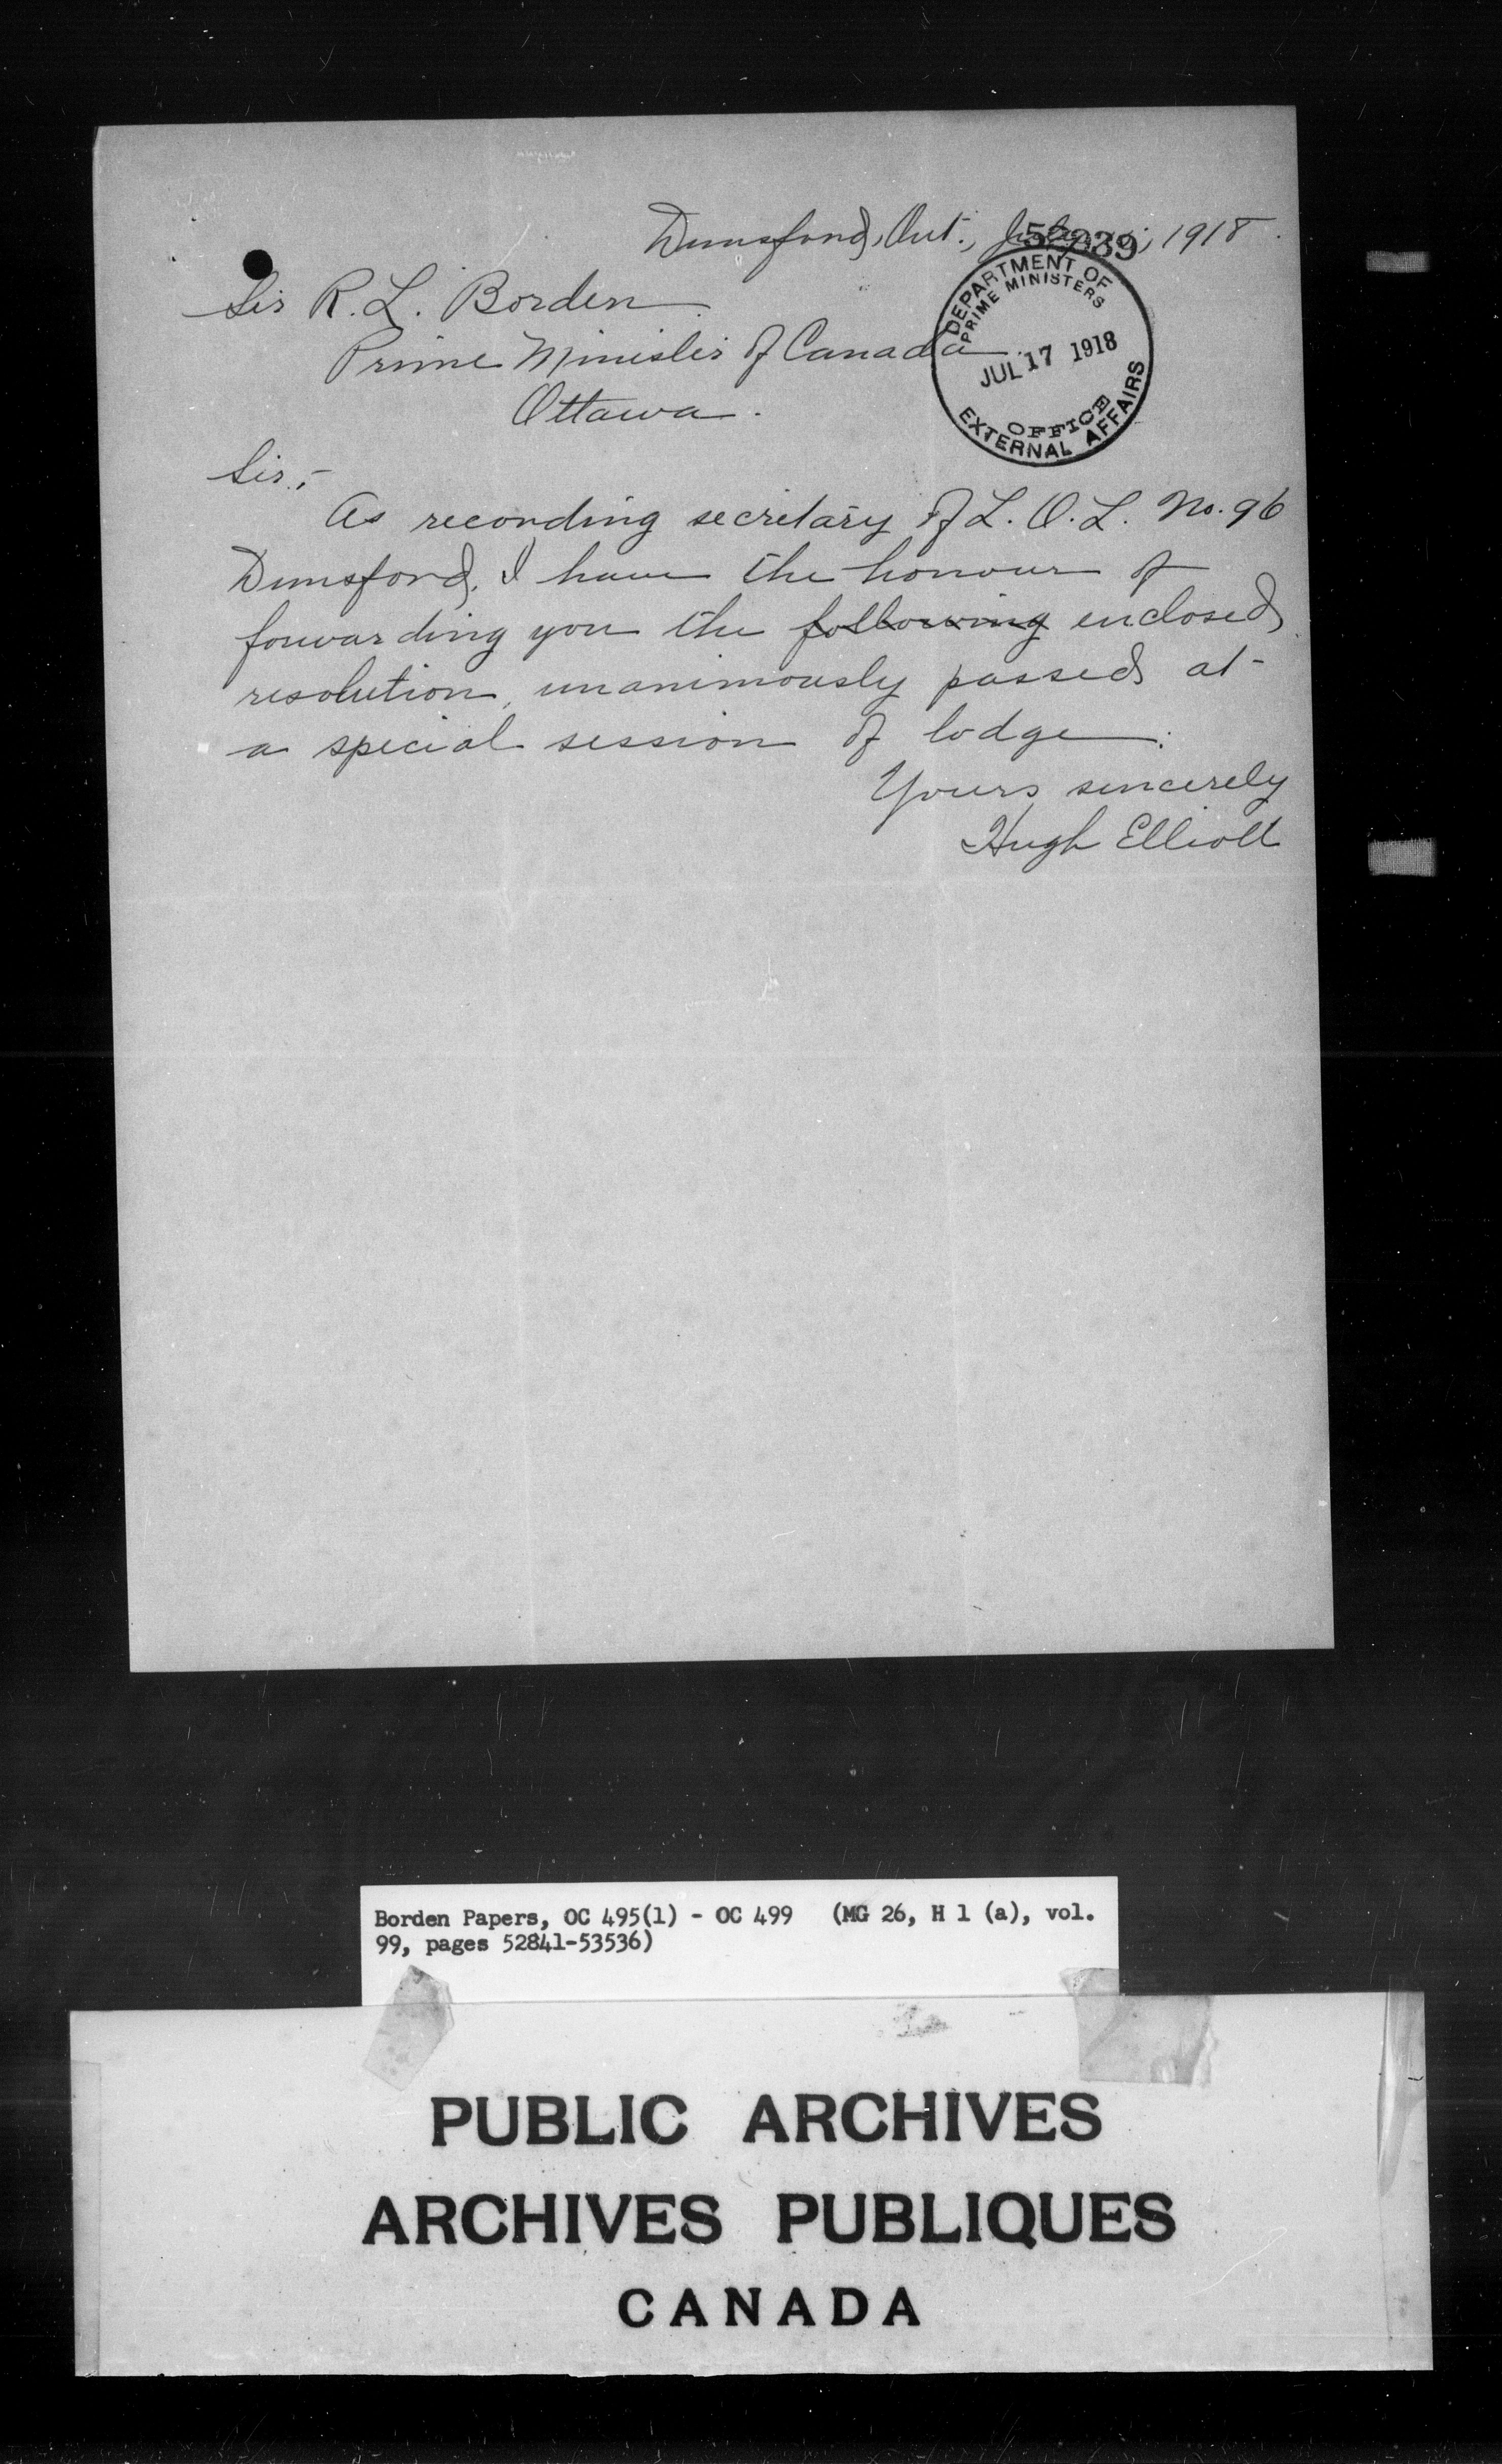 Dunsford, Ont., July 1918.
52939
Sir R. L. Borden
Prime Minister of Canada
Ottawa.
DEPARTMENT OF
PRIME MINISTERS
JUL 17 1918
OFFICE
EXTERNAL AFFAIRS
Sir,-
As recording secretary of L. O. L. No. 96
Dunsford, I have the honour of
forwarding you the following enclosed
resolution, unanimously passed at
a special session of lodge.
Yours sincerely
Hugh Elliott
Borden Papers, OC 495(1) - OC 499 (MG 26, H 1 (a), vol.
99, pages 52841-53536)
PUBLIC ARCHIVES
ARCHIVES PUBLIQUES
CANADA